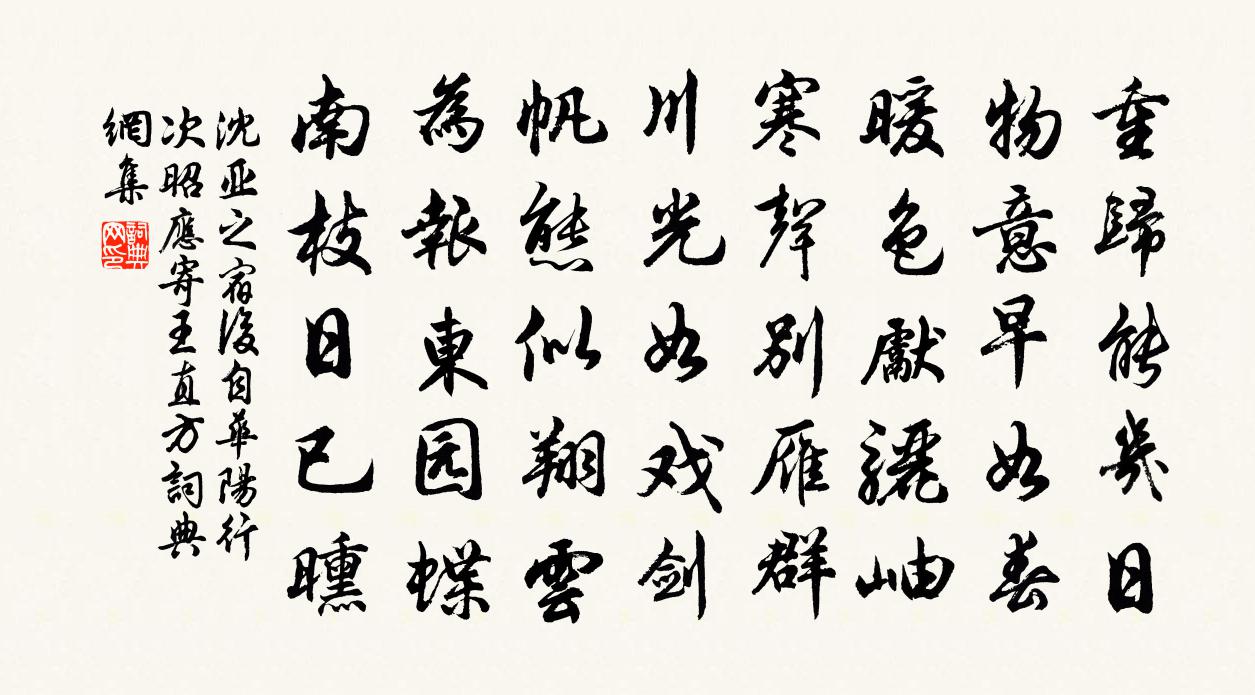 重歸能幾日
物意早如春
暖色獻驪岫
寒聲別雁群
川光如戏剑
帆態似翔雲
為報東园蝶
南枝日已曛
沈亚之宿後自華陽行
次昭應寄王直方詞典
網集
詞典
网印